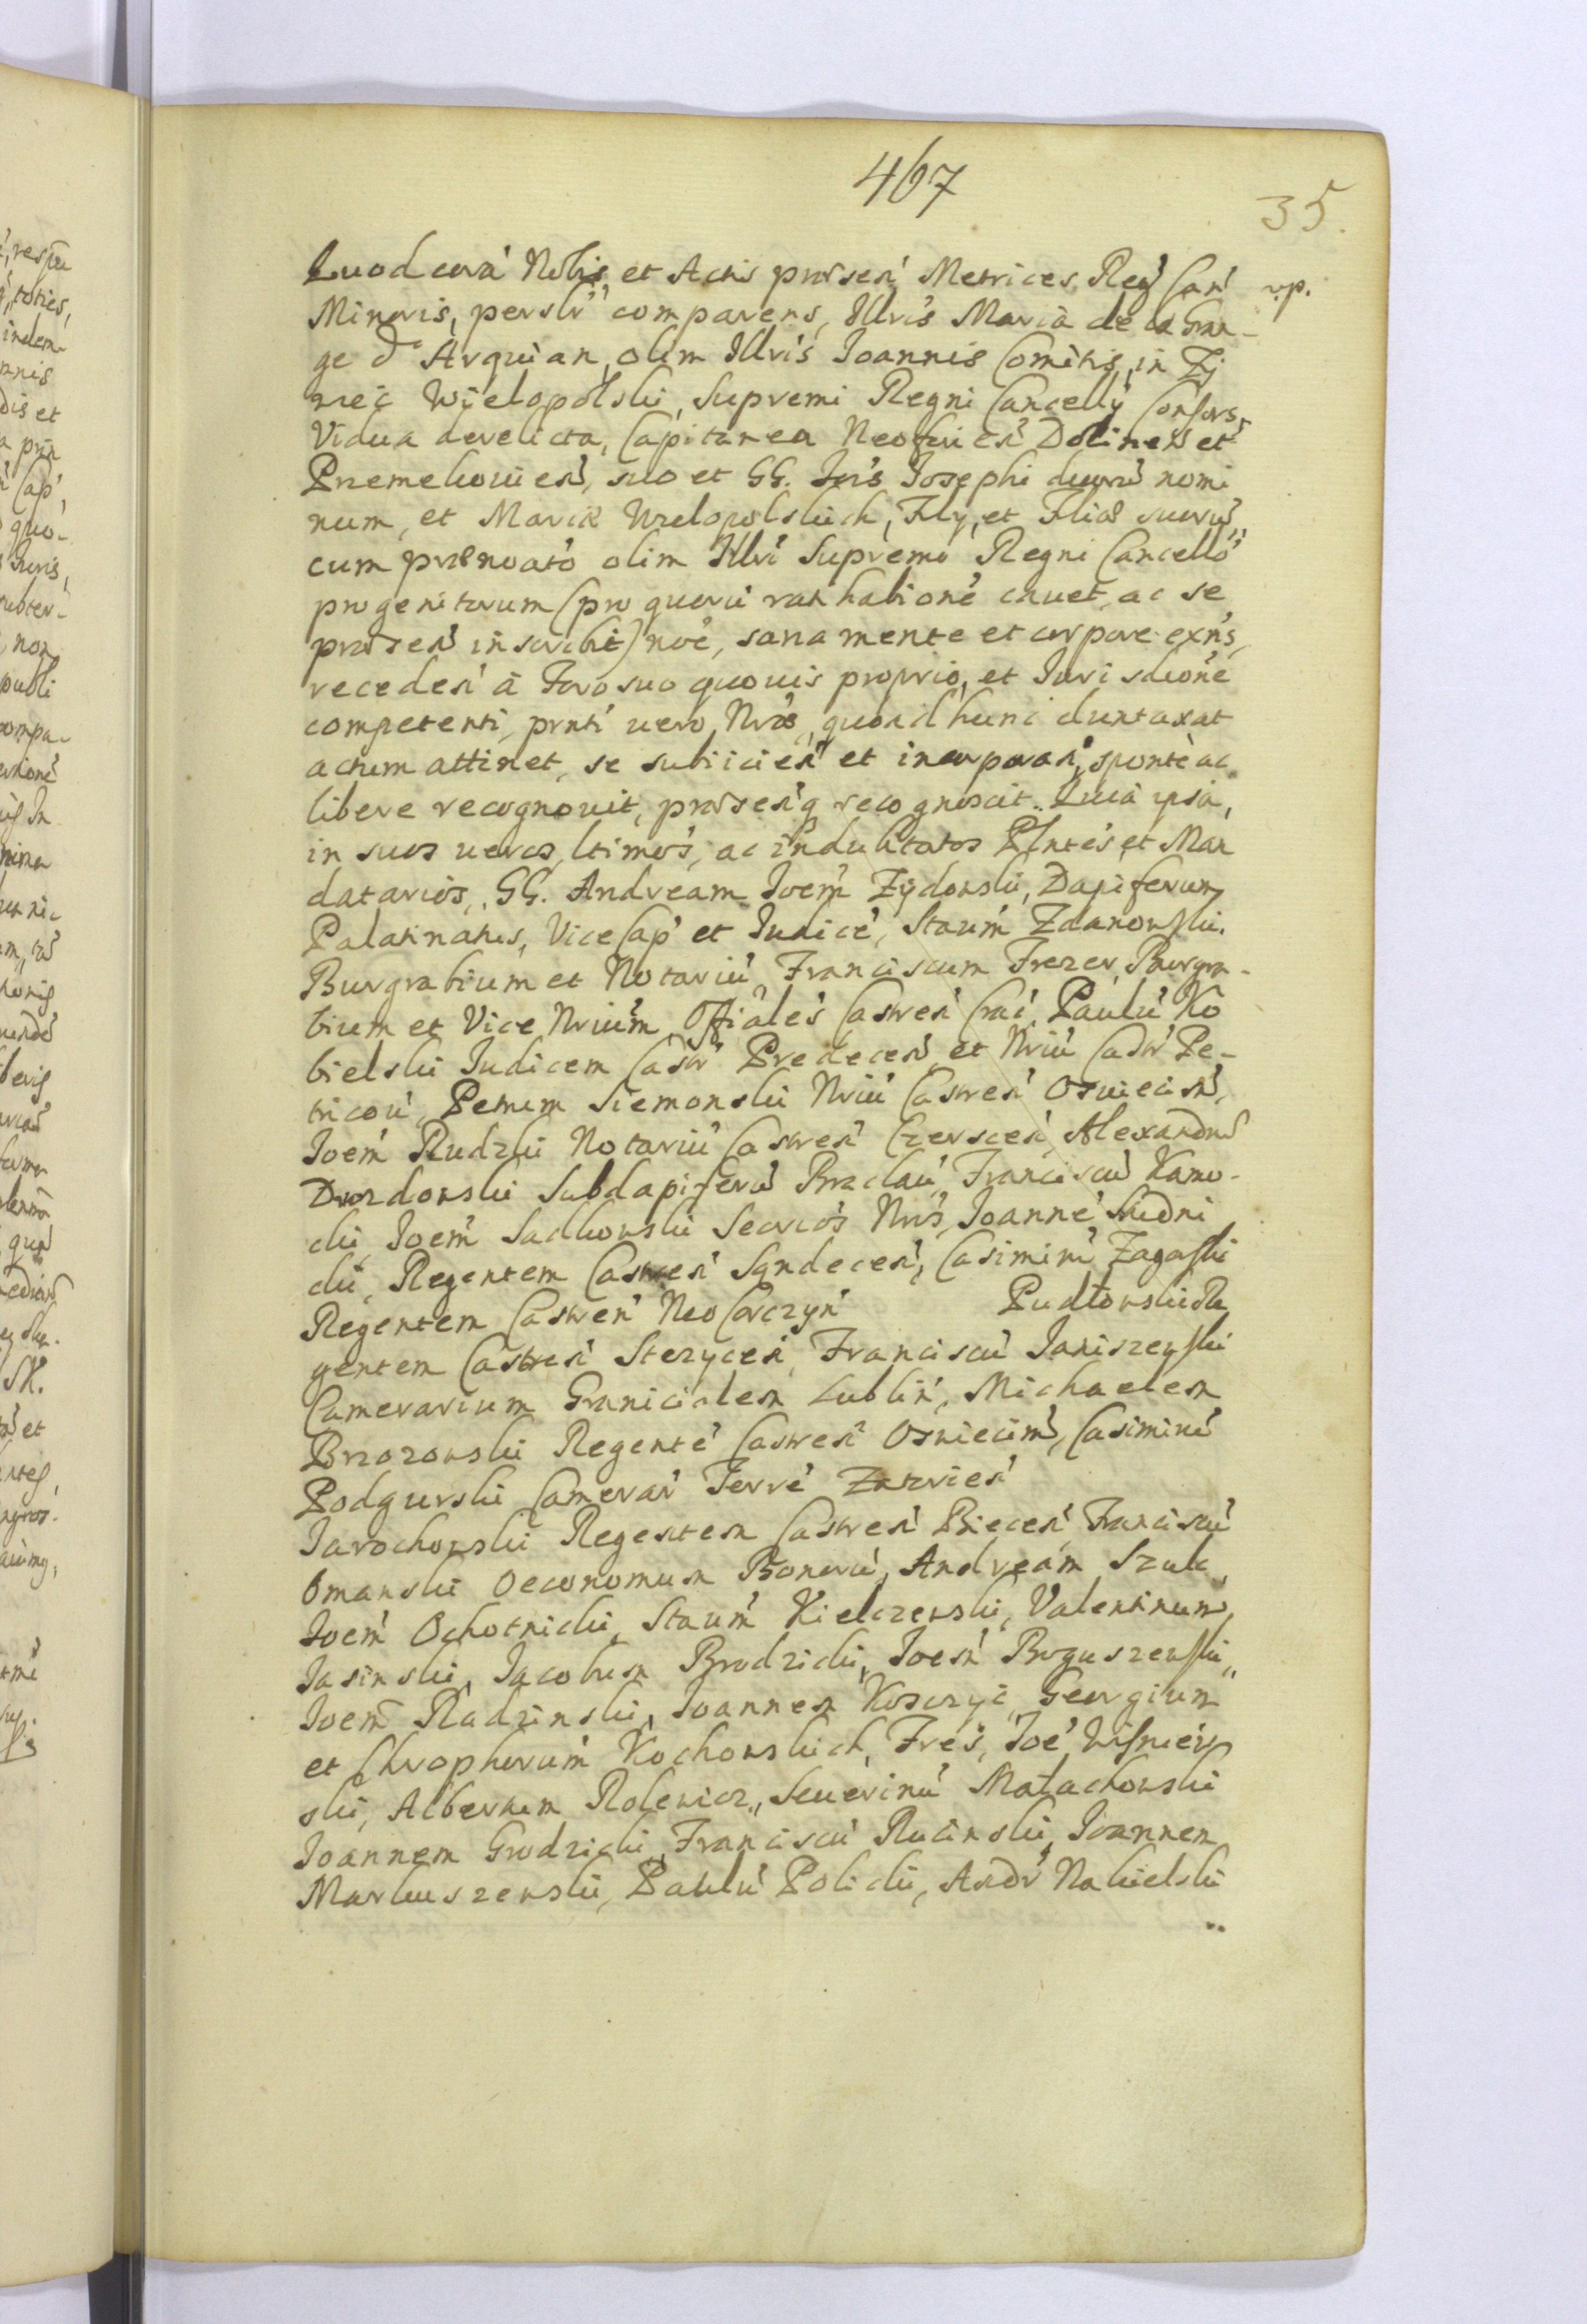 467
35.
Quod corá Nobis, et Actis præseń Metrices Reǵ Cań
Minoris, persĺr comparens, Illris Maria de la Gran-
ge d'Arquian, olim Illris Joannis Comitis, in Zy
wiec Wielopolski, Supremi Regni Cancelly Consors,
Vidua derelicta, Capitanea Neoforień Dolineń et
Przemekouień, suo et GG. Jois Josephi duorú nomi
num, et Mariæ Wielopolskich, Fily, et Filiæ suorú,
cum prænoato olim Illri Supremo Regni Cancello
progenitorum (pro quorú rati habitione cauet, ac se
præseń inscribit) noé, sana mente et corpore exńs,
recedeń à Foro suo quouis proprio, et Jurisdione
competenti, prnti uero Nrós, quoad hunc duntaxat
actum attinet, se subiicień et incorporań, sponte ac
libere recognouit, præseńq recognoscit. Quia ipsa,
in suos ueros, ltimos, ac indubitatos Plntes et Man
datarios, GG. Andream Joem Zydowski, Dapiferum
Palatinatus, Vice Cap et Iudicé, Staum Zdanowski.
Burgrabium et Notariú, Franciscum Frezer, Burgra-
bium et Vice Nrium Offiales Castreń Crać, Paulú Ko
bielski Iudicem Castr Predeceń et Nriú Castr Pe-
tricoú, Petrum Siemonski Nriú Castreń Osuiecim,
Joem Rudzki Notariú Castreń Czersceń, Alexandrú
Drozdowski Subdapiferú Braclaú, Franciscú Kamo-
cki, Joem Sadkowski Secrios Nros, Joanné Studni
cki, Regentem Castreń Sandeceń, Casimirú Zagaski
Regentem Castreń Neo Corczyń Pudłowski Re
gentem Castreń Stezyceń, Franciscú Janiszewski
Camerarium Granicialem Lubliń, Michaelem
Brzozowski Regenté Castreń Osuiecim, Casimirú
Podgurski Camerar Terré Zatorień
Jarochowski Regentem Castreń Bieceń, Franciscú
Omanski Oeconomum Bonorú, Andream Szulc,
Joem Ochotnicki, Staum Kielczewski, Valentinum
Jasinski, Jacobum Brodzicki, Joem Boguszewski,
Joem Radzinski, Joannem Koszczyc, Georgium
et Chrophorum Kochowskich, Fres, Joé Wisniew
ski, Albertum Rolewicz, Seuerinú Małachowski
Joannem Grodzicki, Franciscú Rucinski, Joannem
Markuszewski, Paulú Policki, Andr Nakielski